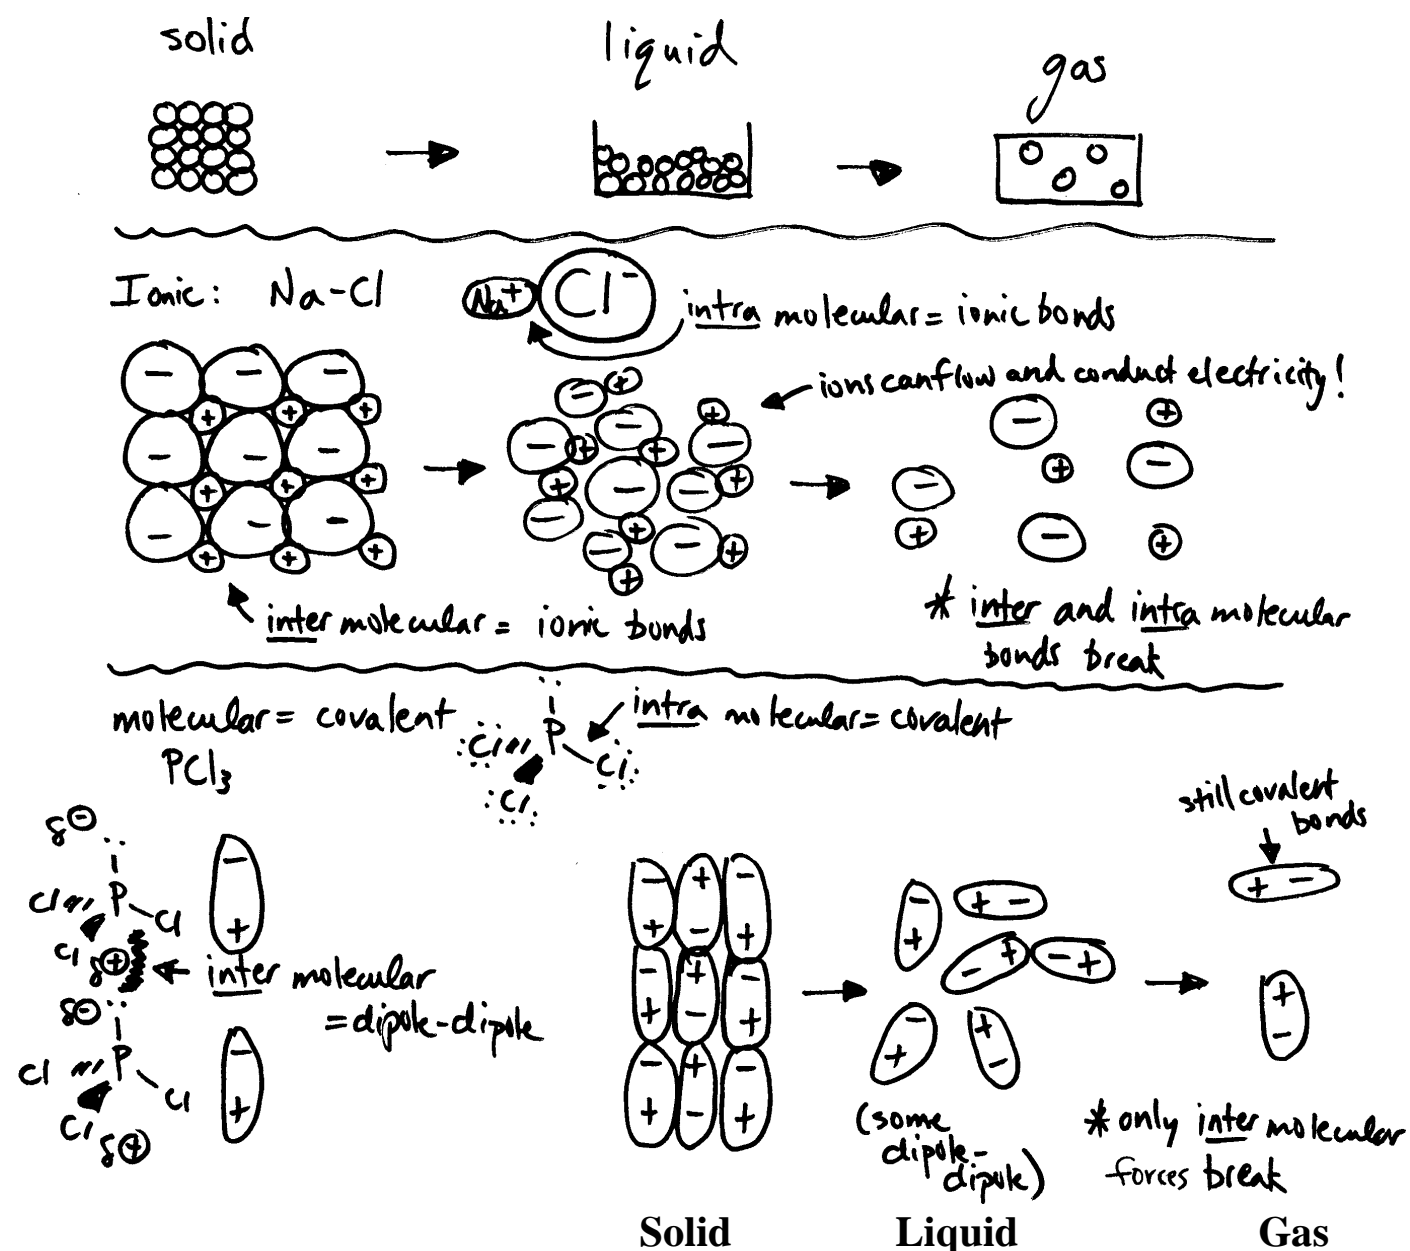 solid
liquid
gas
Ionic: Na-Cl
Na⁺ Cl⁻
intra molecular = ionic bonds
ions can flow and conduct electricity!
− − −
+ + +
− − −
+ + +
− − −
+ + +
inter molecular = ionic bonds
* inter and intra molecular
bonds break
molecular = covalent
PCl₃
P
Cl
Cl
Cl
intra molecular = covalent
δ⊖
P
Cl
Cl
Cl
δ⊕
−
+
inter molecular
= dipole-dipole
δ⊖
P
Cl
Cl
Cl
δ⊕
−
+
still covalent
bonds
+ −
(some
dipole-
dipole)
* only inter molecular
forces break
Solid
Liquid
Gas